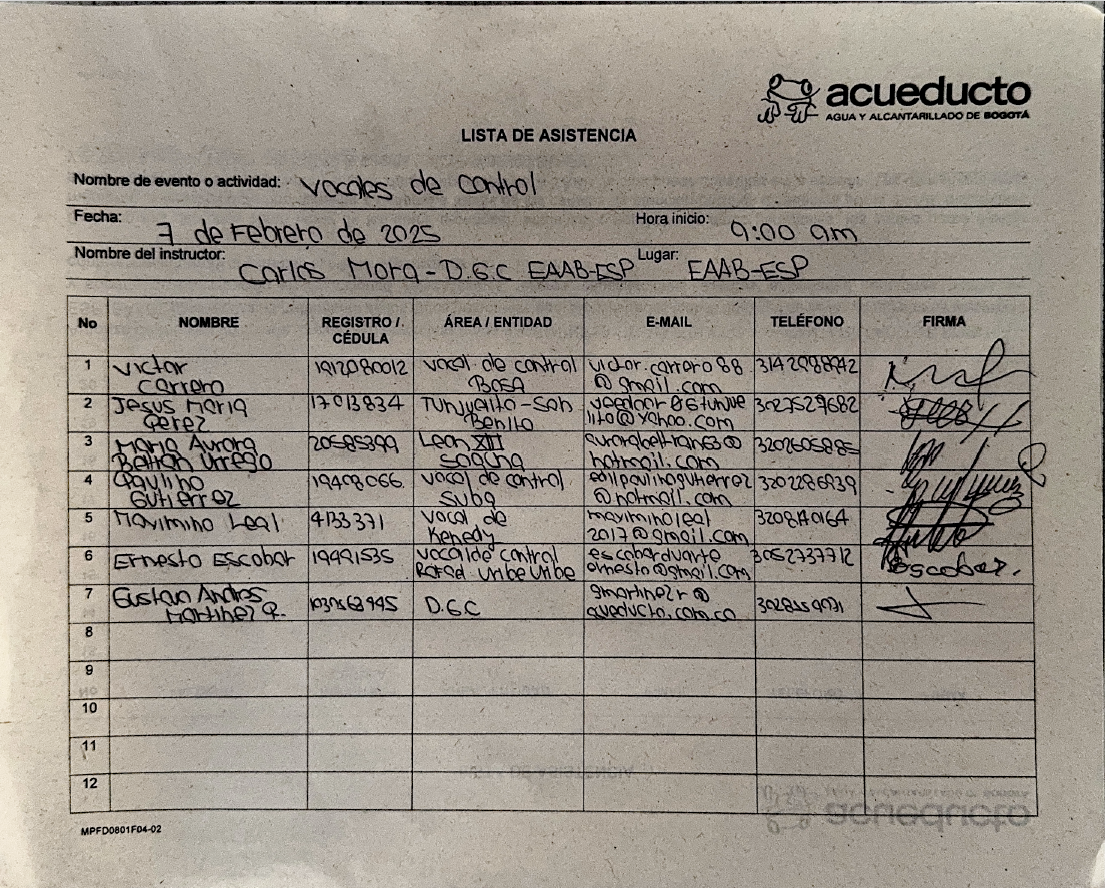 acueducto
AGUA Y ALCANTARILLADO DE BOGOTÁ
LISTA DE ASISTENCIA
Nombre de evento o actividad: Vocales de control
Fecha: 7 de Febrero de 2025 Hora inicio: 9:00 am
Nombre del instructor: Carlos Mora - D.G.C EAAB-ESP Lugar: EAAB-ESP
No NOMBRE REGISTRO / CÉDULA ÁREA / ENTIDAD E-MAIL TELÉFONO FIRMA
1 Victor Carrero vocal de control Bosa victor.carrero88 @gmail.com
2 Jesus Maria Perez 17013834 Tunjuelito-San Benito 3027529682
3 Maria Aurora Beltran Urrego 20585399 Leon XIII aurorabeltran63@ hotmail.com 3202605885
4 Paulino Gutierrez 19408066 vocal de control Suba @hotmail.com 3202286939
5 Maximino Leal 4133371 vocal de Kenedy maximinoleal 2017@gmail.com
6 Ernesto Escobar 19491535 vocal de control Rafael Uribe Uribe escobarduarte ernesto@gmail.com 3052737712 Escobar.
7 Martinez D.G.C gmartinezr@ acueducto.com.co
8
9
10
11
12
MPFD0801F04-02